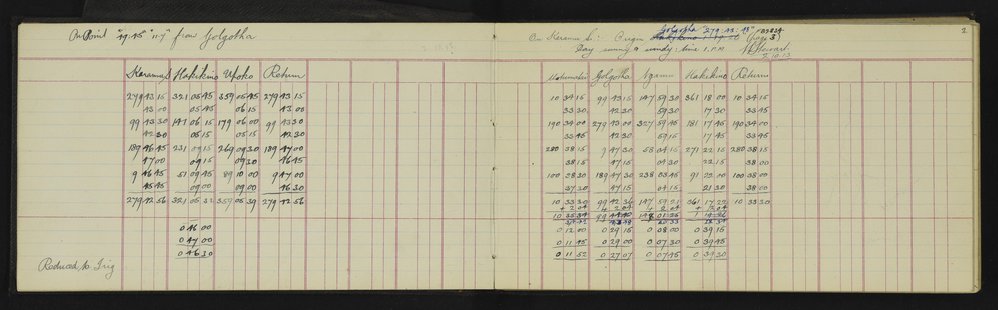 On Point "19.45" 11.7 from Golgotha
Karamu S Hakikino Upoko Return
279 43 15 321 05 45 359 05 45 279 43 15
43 00 05 45 06 15 43 00
99 43 30 141 06 15 179 06 00 99 43 30
42 30 05 15 05 15 42 30
189 46 45 231 09 15 269 09 30 189 47 00
47 00 09 15 09 30 46 45
9 46 45 51 09 45 89 10 00 9 47 00
45 45 09 00 09 00 46 30
279 42 56 321 05 31 359 05 39 279 42 56
0 46 00
0 47 00
0 46 30
Reduced to Trig
2
On Karamu S:- Origin Golgotha "279:43:43"
(page 3)
Day sunny & windy: time 1 P.M
Golgotha Ngaumu Hakikino Return
10 34 15 99 43 15 147 59 30 361 18 00 10 34 15
33 30 42 30 59 30 17 30 33 45
190 34 00 279 43 00 327 59 45 181 17 45 190 34 00
33 45 42 30 59 15 17 45 33 45
280 38 15 9 47 30 58 04 15 271 22 15 280 38 15
38 15 47 15 04 30 22 15 38 00
100 38 30 189 47 30 238 03 45 91 22 00 100 38 00
37 30 47 15 04 15 21 30 38 00
10 33 30 99 42 36 147 59 21 361 17 22 10 33 30
+ 2 04 + 2 04 + 2 04 + 2 04
0 12 00 0 29 15 0 08 00 0 39 15
0 11 45 0 29 00 0 07 30 0 39 45
0 11 52 0 29 07 0 07 45 0 39 30